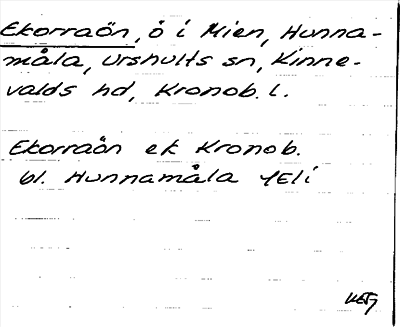 Ekorraön, ö i Mien, Hunna-
måla, Urshults sn, Kinne-
valds hd, Kronob. l.
Ekorraön ek Kronob.
bl. Hunnamåla